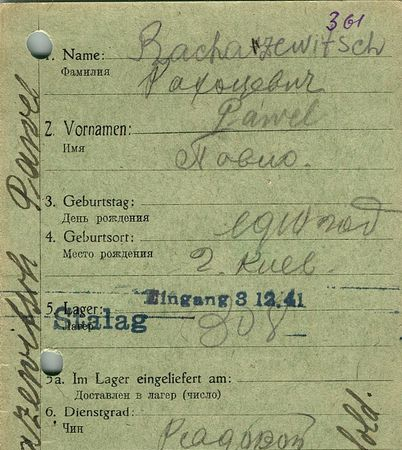 301
1. Name: Rachatzewitsch
Фамилия
Рахоцевич
Pawel
2. Vornamen:
Имя
Павло.
3. Geburtstag:
День рождения
год
4. Geburtsort:
Место рождения
г. Киев.
Eingang 3 12.41
5. Lager:
Stalag
Лагерь
308
5a. Im Lager eingeliefert am:
Доставлен в лагерь (число)
6. Dienstgrad:
Чин
Рядовой
Sold.
atzewitsch Pawel